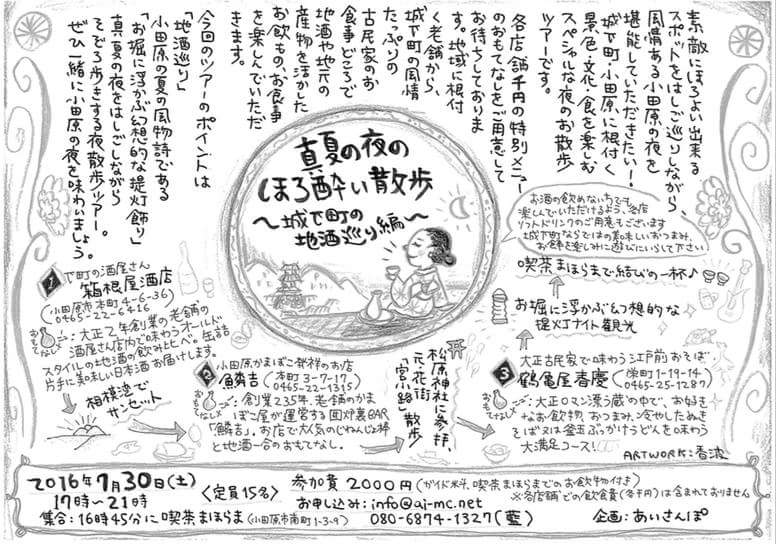 素敵にほろよい出来る
スポットをはしご巡りしながら、
風情ある小田原の夜を
堪能していただきたい!
城下町小田原に根付く
景色・文化・食を楽しむ
スペシャルな夜のお散歩
ツアーです。
各店舗千円の特別メニュー
のおもてなしをご用意して
お待ちしておりま
す。地域に根付
く老舗から、
城下町の風情
たっぷりの
古民家のお
食事どころで
地酒や地元の
産物を活かした
お飲もの、お食事
を楽しんでいただ
きます。
今回のツアーのポイントは
「地酒巡り」
小田原の夏の風物詩である
「お堀に浮かぶ幻想的な提灯飾り」
真夏の夜をはしごしながら
そぞろ歩きする夜散歩ツアー。
ぜひ一緒に小田原の夜を味わいましょう。
真夏の夜の
ほろ酔い散歩
~城下町の
地酒巡り編~
お酒の飲めない方でも
楽しんでいただけるよう、各店
ソフトドリンクのご用意もございます
城下町ならではの美味しいおつまみ、
お食事を楽しみに遊びにいらして下さい
1
下町の酒屋さん
箱根屋酒店
(小田原市本町4-6-36)
0465-22-6416
おもてなし
:大正2年創業の老舗の
酒屋さん店内で味わうオールド
スタイルの地酒の飲み比べ。缶詰
片手に美味しい日本酒お届けします。
相模湾で
サンセット
2
小田原かまぼこ発祥のお店
鱗吉
(本町3-7-17)
0465-22-1315)
おもてなし
:創業235年、老舗のかま
ぼこ屋が運営する囲炉裏BAR
「鱗吉」。お店で大人気のじねんじょ棒
と地酒一合のおもてなし。
松原神社に参拝、
元花街
「宮小路」散歩
3
大正古民家で味わう江戸前おそば・
鶴亀屋春慶
(栄町1-19-14
0465-25-1287)
おもてなし
:大正ロマン漂う蔵の中で、お好き
なお飲物、おつまみ、冷やしたぬき
そば又は釜玉ぶっかけうどんを味わう
大満足コース!
お堀に浮かぶ幻想的な
提灯ナイト観光
喫茶まほらまで結びの一杯♪
ARTWORK:香波
2016年7月30日(土)
17時~21時
集合:16時45分に喫茶まほらま(小田原市南町1-3-9)
〈定員15名〉
参加費 2000円(ガイド料、喫茶まほらまでのお飲物付き)
※各店舗での飲食費(各千円)は含まれておりません
お申し込み:info@aj-mc.net
080-6874-1327(藍)
企画:あいさんぽ